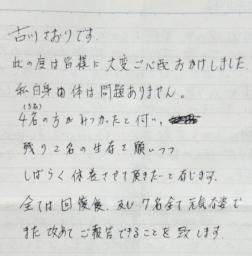 古川さおりです。
此の度は皆様に大変ご心配おかけしました。
私自身由体は問題ありません。
(うち)
4名の方がみつかったと伺い、
残り2名の生存を願いつつ
しばらく休養させて頂きたーと存じます。
全ては回復後、及び7名全て元気な姿で
また改めてご報告できることを致します。